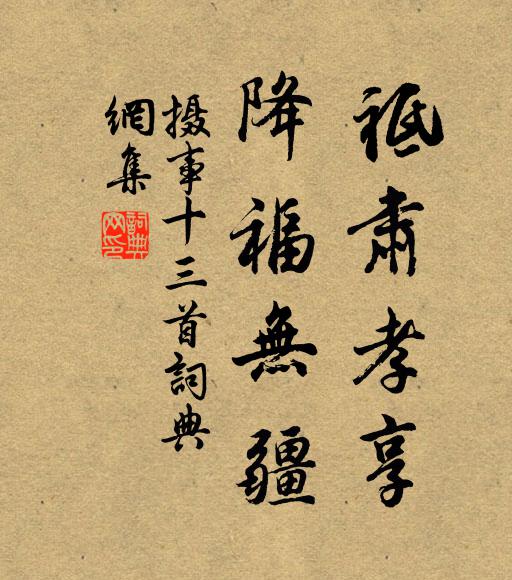 祗肅孝享
降福無疆
摄事十三首詞典
網集
詞典網印